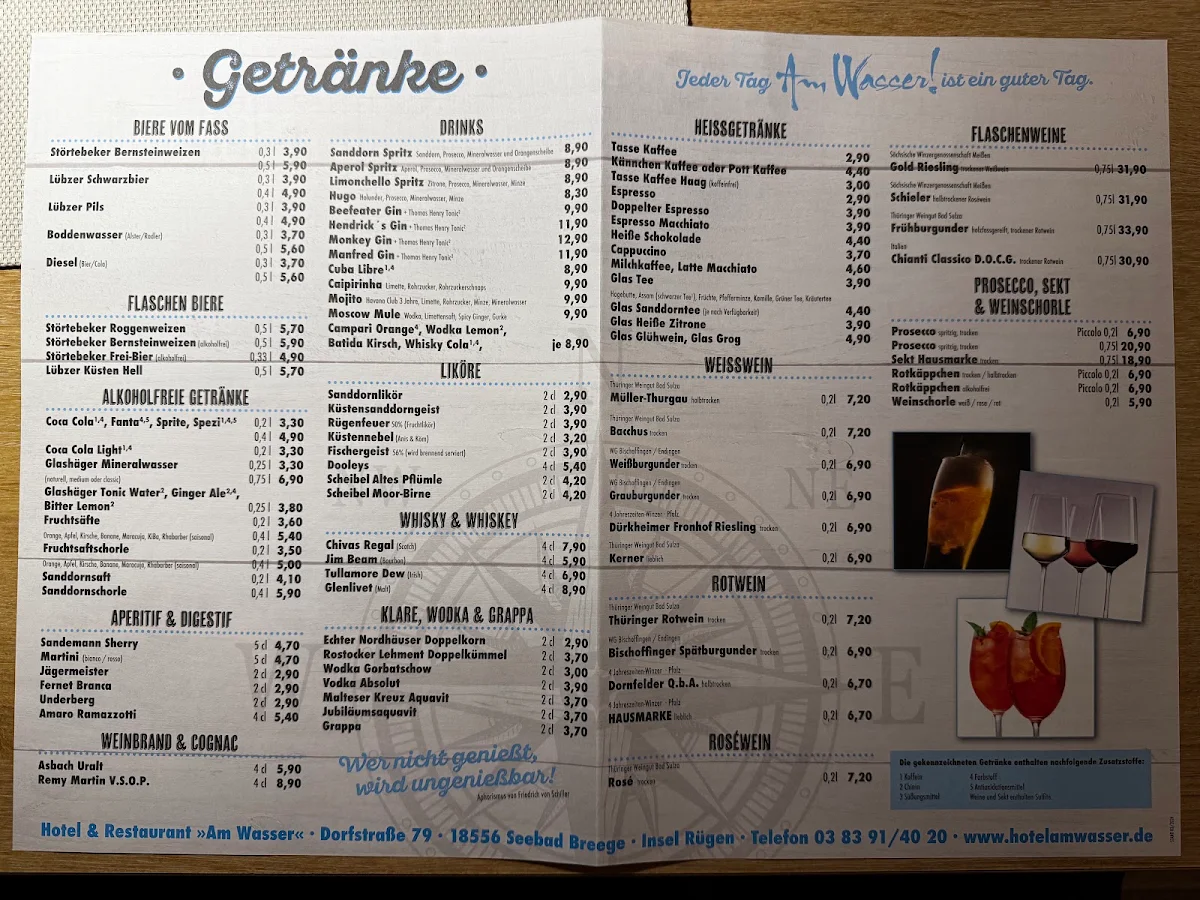 · Getränke ·
BIERE VOM FASS
Störtebeker Bernsteinweizen 0,3 l 3,90
0,5 l 5,90
Lübzer Schwarzbier 0,3 l 3,90
0,4 l 4,90
Lübzer Pils 0,3 l 3,90
0,4 l 4,90
Boddenwasser (Alster/Radler) 0,3 l 3,70
0,5 l 5,60
Diesel (Bier/Cola) 0,3 l 3,70
0,5 l 5,60
FLASCHEN BIERE
Störtebeker Roggenweizen 0,5 l 5,70
Störtebeker Bernsteinweizen (alkoholfrei) 0,5 l 5,90
Störtebeker Frei-Bier (alkoholfrei) 0,33 l 4,90
Lübzer Küsten Hell 0,5 l 5,70
ALKOHOLFREIE GETRÄNKE
Coca Cola¹,⁴, Fanta⁴,⁵, Sprite, Spezi¹,⁴,⁵ 0,2 l 3,30
0,4 l 4,90
Coca Cola Light¹,⁴ 0,2 l 3,30
Glashäger Mineralwasser 0,25 l 3,30
(naturell, medium oder classic) 0,75 l 6,90
Glashäger Tonic Water², Ginger Ale²,⁴,
Bitter Lemon² 0,25 l 3,80
Fruchtsäfte 0,2 l 3,60
Orange, Apfel, Kirsche, Banane, Maracuja, KiBa, Rhabarber (saisonal) 0,4 l 5,40
Fruchtsaftschorle 0,2 l 3,50
Orange, Apfel, Kirsche, Banane, Maracuja, Rhabarber (saisonal) 0,4 l 5,00
Sanddornsaft 0,2 l 4,10
Sanddornschorle 0,4 l 5,90
APERITIF & DIGESTIF
Sandemann Sherry 5 cl 4,70
Martini (bianco / rosso) 5 cl 4,70
Jägermeister 2 cl 2,90
Fernet Branca 2 cl 2,90
Underberg 2 cl 2,90
Amaro Ramazzotti 4 cl 5,40
WEINBRAND & COGNAC
Asbach Uralt 4 cl 5,90
Remy Martin V.S.O.P. 4 cl 8,90
DRINKS
Sanddorn Spritz Sanddorn, Prosecco, Mineralwasser und Orangenscheibe 8,90
Aperol Spritz Aperol, Prosecco, Mineralwasser und Orangenscheibe 8,90
Limonchello Spritz Zitrone, Prosecco, Mineralwasser, Minze 8,90
Hugo Holunder, Prosecco, Mineralwasser, Minze 8,30
Beefeater Gin · Thomas Henry Tonic² 9,90
Hendrick`s Gin · Thomas Henry Tonic² 11,90
Monkey Gin · Thomas Henry Tonic² 12,90
Manfred Gin · Thomas Henry Tonic² 11,90
Cuba Libre¹,⁴ 8,90
Caipirinha Limette, Rohrzucker, Rohrzuckerschnaps 9,90
Mojito Havana Club 3 Jahre, Limette, Rohrzucker, Minze, Mineralwasser 9,90
Moscow Mule Wodka, Limettensaft, Spicy Ginger, Gurke 9,90
Campari Orange⁴, Wodka Lemon²,
Batida Kirsch, Whisky Cola¹,⁴, je 8,90
LIKÖRE
Sanddornlikör 2 cl 2,90
Küstensanddorngeist 2 cl 3,90
Rügenfeuer 50% (Fruchtlikör) 2 cl 3,90
Küstennebel (Anis & Korn) 2 cl 3,20
Fischergeist 56% (wird brennend serviert) 2 cl 3,90
Dooleys 4 cl 5,40
Scheibel Altes Pflümle 2 cl 4,20
Scheibel Moor-Birne 2 cl 4,20
WHISKY & WHISKEY
Chivas Regal (Scotch) 4 cl 7,90
Jim Beam (Bourbon) 4 cl 5,90
Tullamore Dew (Irish) 4 cl 6,90
Glenlivet (Malt) 4 cl 8,90
KLARE, WODKA & GRAPPA
Echter Nordhäuser Doppelkorn 2 cl 2,90
Rostocker Lehment Doppelkümmel 2 cl 3,70
Wodka Gorbatschow 2 cl 3,00
Vodka Absolut 2 cl 3,90
Malteser Kreuz Aquavit 2 cl 3,70
Jubiläumsaquavit 2 cl 3,70
Grappa 2 cl 3,70
Wer nicht genießt,
wird ungenießbar!
Aphorismus von Friedrich von Schiller
Jeder Tag Am Wasser! ist ein guter Tag.
HEISSGETRÄNKE
Tasse Kaffee 2,90
Kännchen Kaffee oder Pott Kaffee 4,40
Tasse Kaffee Haag (koffeinfrei) 3,00
Espresso 2,90
Doppelter Espresso 3,90
Espresso Macchiato 3,90
Heiße Schokolade 4,40
Cappuccino 3,70
Milchkaffee, Latte Macchiato 4,60
Glas Tee 3,90
Hagebutte, Assam (schwarzer Tee¹), Früchte, Pfefferminze, Kamille, Grüner Tee, Kräutertee
Glas Sanddorntee (je nach Verfügbarkeit) 4,40
Glas Heiße Zitrone 3,90
Glas Glühwein, Glas Grog 4,90
WEISSWEIN
Thüringer Weingut Bad Sulza
Müller-Thurgau halbtrocken 0,2l 7,20
Thüringer Weingut Bad Sulza
Bacchus trocken 0,2l 7,20
WG Bischoffingen / Endingen
Weißburgunder trocken 0,2l 6,90
WG Bischoffingen / Endingen
Grauburgunder trocken 0,2l 6,90
4 Jahreszeiten-Winzer · Pfalz
Dürkheimer Fronhof Riesling trocken 0,2l 6,90
Thüringer Weingut Bad Sulza
Kerner lieblich 0,2l 6,90
ROTWEIN
Thüringer Weingut Bad Sulza
Thüringer Rotwein trocken 0,2l 7,20
WG Bischoffingen / Endingen
Bischoffinger Spätburgunder trocken 0,2l 6,90
4 Jahreszeiten-Winzer · Pfalz
Dornfelder Q.b.A. halbtrocken 0,2l 6,70
4 Jahreszeiten-Winzer · Pfalz
HAUSMARKE lieblich 0,2l 6,70
ROSÉWEIN
Thüringer Weingut Bad Sulza
Rosé trocken 0,2l 7,20
FLASCHENWEINE
Sächsische Winzergenossenschaft Meißen
Gold Riesling trockener Weißwein 0,75l 31,90
Sächsische Winzergenossenschaft Meißen
Schieler halbtrockener Roséwein 0,75l 31,90
Thüringer Weingut Bad Sulza
Frühburgunder holzfassgereift, trockener Rotwein 0,75l 33,90
Italien
Chianti Classico D.O.C.G. trockener Rotwein 0,75l 30,90
PROSECCO, SEKT
& WEINSCHORLE
Prosecco spritzig, trocken Piccolo 0,2l 6,90
Prosecco spritzig, trocken 0,75l 20,90
Sekt Hausmarke trocken 0,75l 18,90
Rotkäppchen trocken / halbtrocken Piccolo 0,2l 6,90
Rotkäppchen alkoholfrei Piccolo 0,2l 6,90
Weinschorle weiß / rose / rot 0,2l 5,90
Die gekennzeichneten Getränke enthalten nachfolgende Zusatzstoffe:
1 Koffein 4 Farbstoff
2 Chinin 5 Antioxidationsmittel
3 Süßungsmittel Weine und Sekt enthalten Sulfite.
NE
E
Hotel & Restaurant »Am Wasser« · Dorfstraße 79 · 18556 Seebad Breege · Insel Rügen · Telefon 03 83 91/40 20 · www.hotelamwasser.de